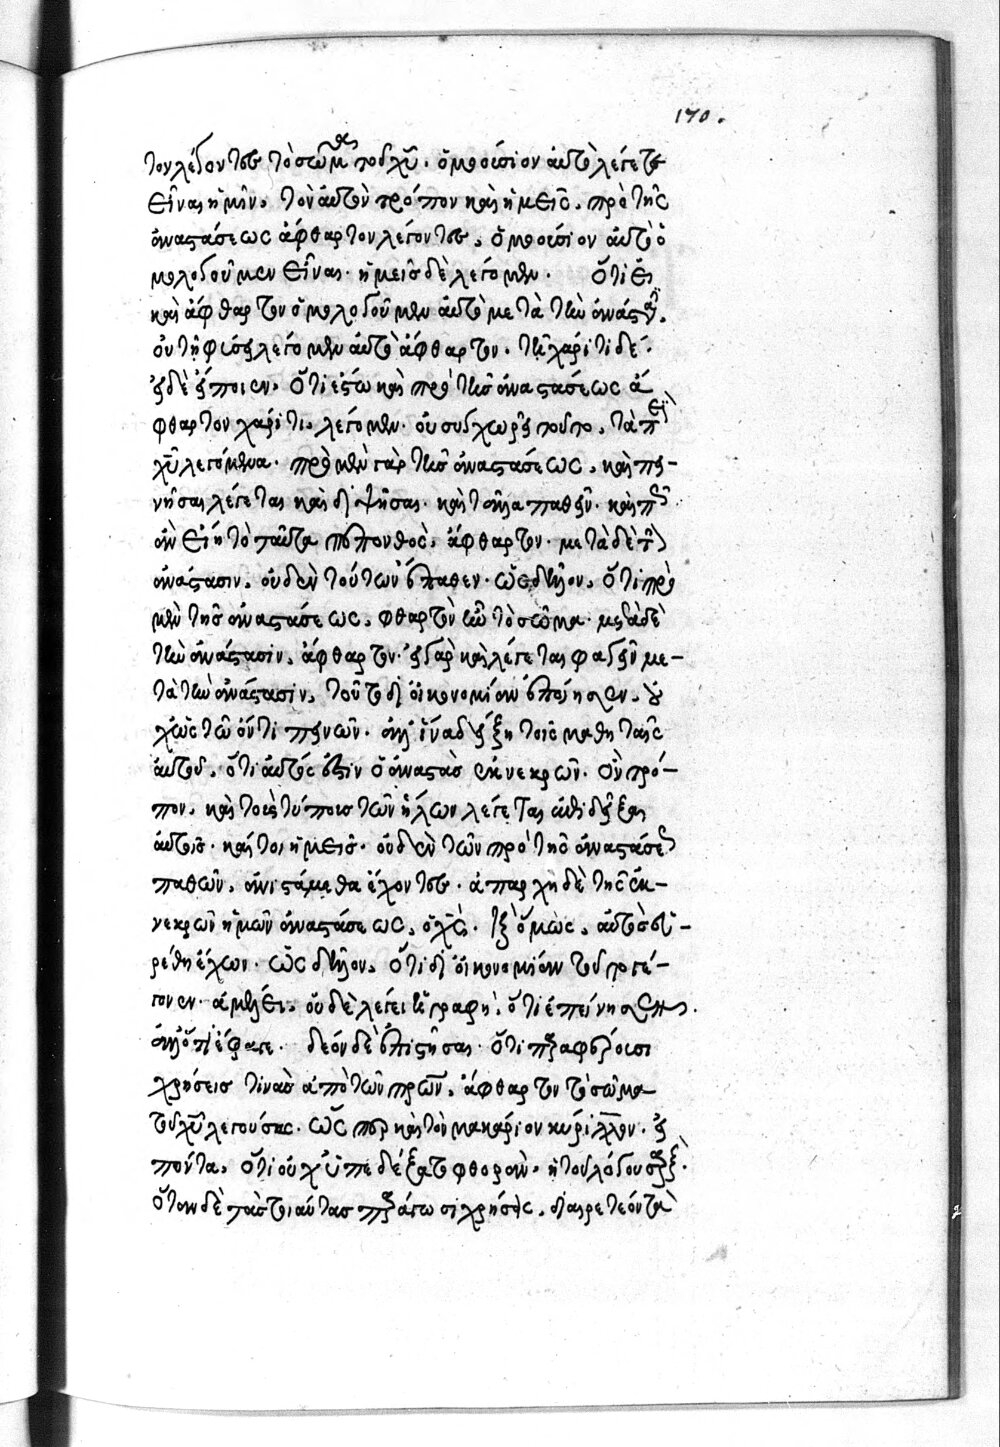 170.
τον λέγοντες τὸ σῶμα τοῦ χυ. ὁμοούσιον αὐτὸ λέγετε
εἶναι ἡμῖν. τὸν αὐτὸν τρόπον καὶ ἡμεῖς. πρὸ τῆς
ἀναστάσεως ἄφθαρτον λέγοντες. ὁμοούσιον αὐτὸ ὁ
μολογοῦμεν εἶναι. ἡμεῖς δὲ λέγομεν. ὅτι εἰ
καὶ ἄφθαρτον ὁμολογοῦμεν αὐτὸ μετὰ τὴν ἀνάστασιν.
οὐ τῇ φύσει λέγομεν αὐτὸ ἄφθαρτον. τῇ χάριτι δέ.
εἰ δὲ εἴποιεν. ὅτι ἔστω καὶ πρὸ τῆς ἀναστάσεως ἄ
φθαρτον χάριτι λέγομεν. οὐ συγχωρεῖ τοῦτο. τὰ περὶ
χυ λεγόμενα. πρὸ μὲν γὰρ τῆς ἀναστάσεως. καὶ πει-
νῆσαι λέγεται καὶ διψῆσαι. καὶ τἄλλα παθεῖν. καὶ πῶς
ἂν εἴη τὸ ταῦτα πεπονθὸς. ἄφθαρτον. μετὰ δὲ τὴν
ἀνάστασιν. οὐδὲν τούτων ἔπαθεν. ὡς δῆλον. ὅτι πρὸ
μὲν τῆς ἀναστάσεως. φθαρτὸν ἦν τὸ σῶμα. μετὰ δὲ
τὴν ἀνάστασιν. ἄφθαρτον. εἰ γὰρ καὶ λέγεται φαγεῖν με-
τὰ τὴν ἀνάστασιν. τοῦτο δι οἰκονομίαν ἐποίησεν. οὐ
χ ὡς τῷ ὄντι πεινῶν. ἀλλ ἵνα δείξῃ τοῖς μαθηταῖς
αὐτοῦ. ὅτι αὐτός ἐστιν ὁ ἀναστὰς ἐκ νεκρῶν. ὃν τρό-
πον. καὶ τοὺς τύπους τῶν ἥλων λέγεται ἐπιδεῖξαι
αὐτοῖς. καίτοι ἡμεῖς. οὐδὲν τῶν πρὸ τῆς ἀναστάσεως
παθῶν. ἀνιστάμεθα ἔχοντες. ἀπαρχὴ δὲ τῆς ἐκ-
νεκρῶν ἡμῶν ἀναστάσεως. ὁ χς. ὅμως. αὐτὸς εὑ-
ρέθη ἔχων. ὡς δῆλον. ὅτι δι οἰκονομίαν τοῦτο γέ-
γονεν. ἀμέλει. οὐδὲ λέγει ἡ γραφή. ὅτι ἐπείνησεν.
ἀλλ ὅτι ἔφαγε. δέον δὲ ἐπιστῆσαι. ὅτι παραφέρουσι
χρήσεις τινὰς ἀπὸ τῶν πρων. ἄφθαρτον τὸ σῶμα
τοῦ χυ λεγούσας. ὥσπερ καὶ τὸν μακάριον κύριλλον. εἰ
πόντα. ὅτι οὐχ ὑπεδέξατο φθορὰν. ἡ τοῦ λόγου σάρξ.
ὅταν δὲ τὰς τοιαύτας παράγωσι χρήσεις. διαιρετέον τὰ